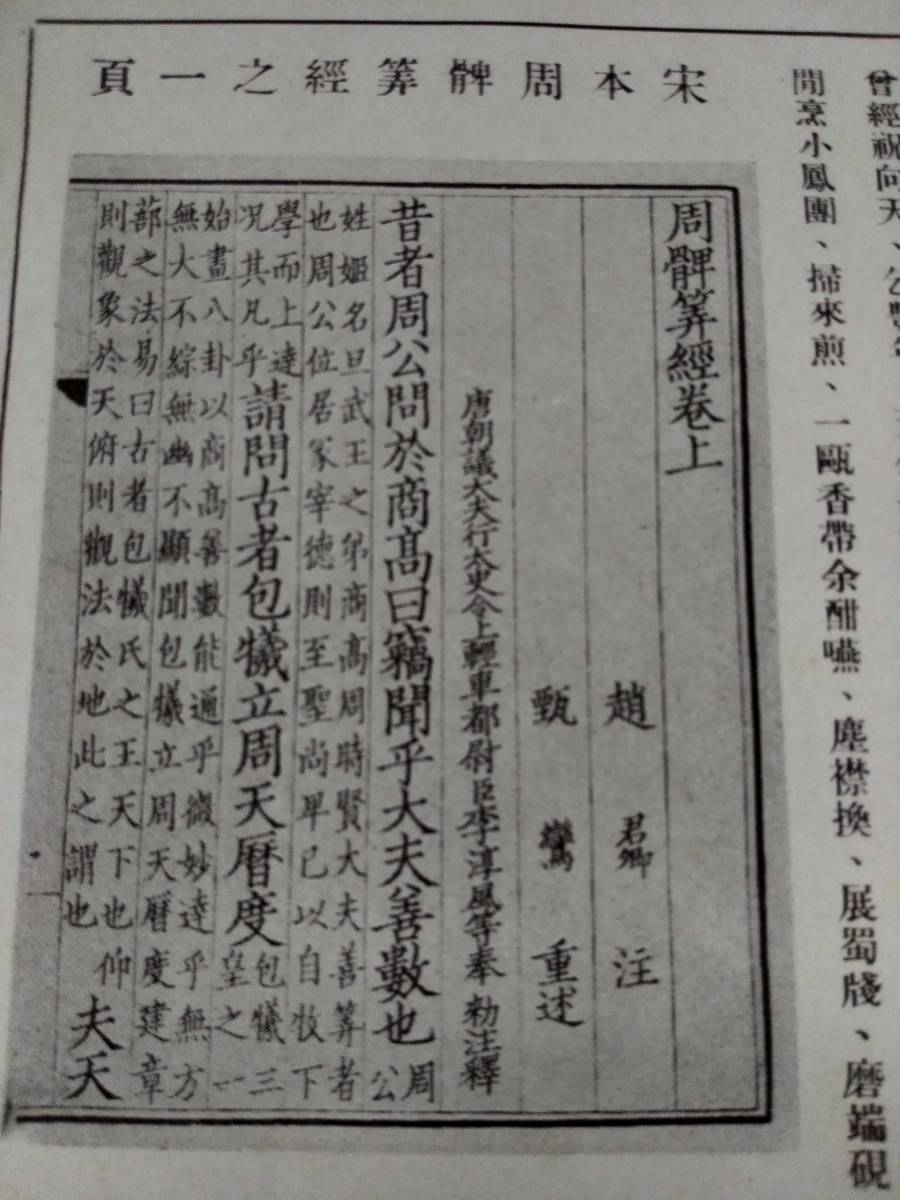 曾經祝向天、公豐年
閒烹小鳳團、掃來煎、一甌香帶余酣嚥、塵襟換、展蜀牋、磨端硯
宋本周髀筭經之一頁
周髀筭經卷上
趙君卿注
甄鸞重述
唐朝議大夫行太史令上輕車都尉臣李淳風等奉勑注釋
昔者周公問於商髙曰竊聞乎大夫善數也周公
姓姬名旦武王之弟商髙周時賢大夫善筭者
也周公位居冢宰德則至聖尚卑己以自牧下
學而上達况其凡乎請問古者包犧立周天曆度包犧三皇之一
始畫八卦以商髙善數能通乎微妙達乎無方
無大不綜無幽不顯聞包犧立周天曆度建章
蔀之法易曰古者包犧氏之王天下也仰
則觀象於天俯則觀法於地此之謂也夫天